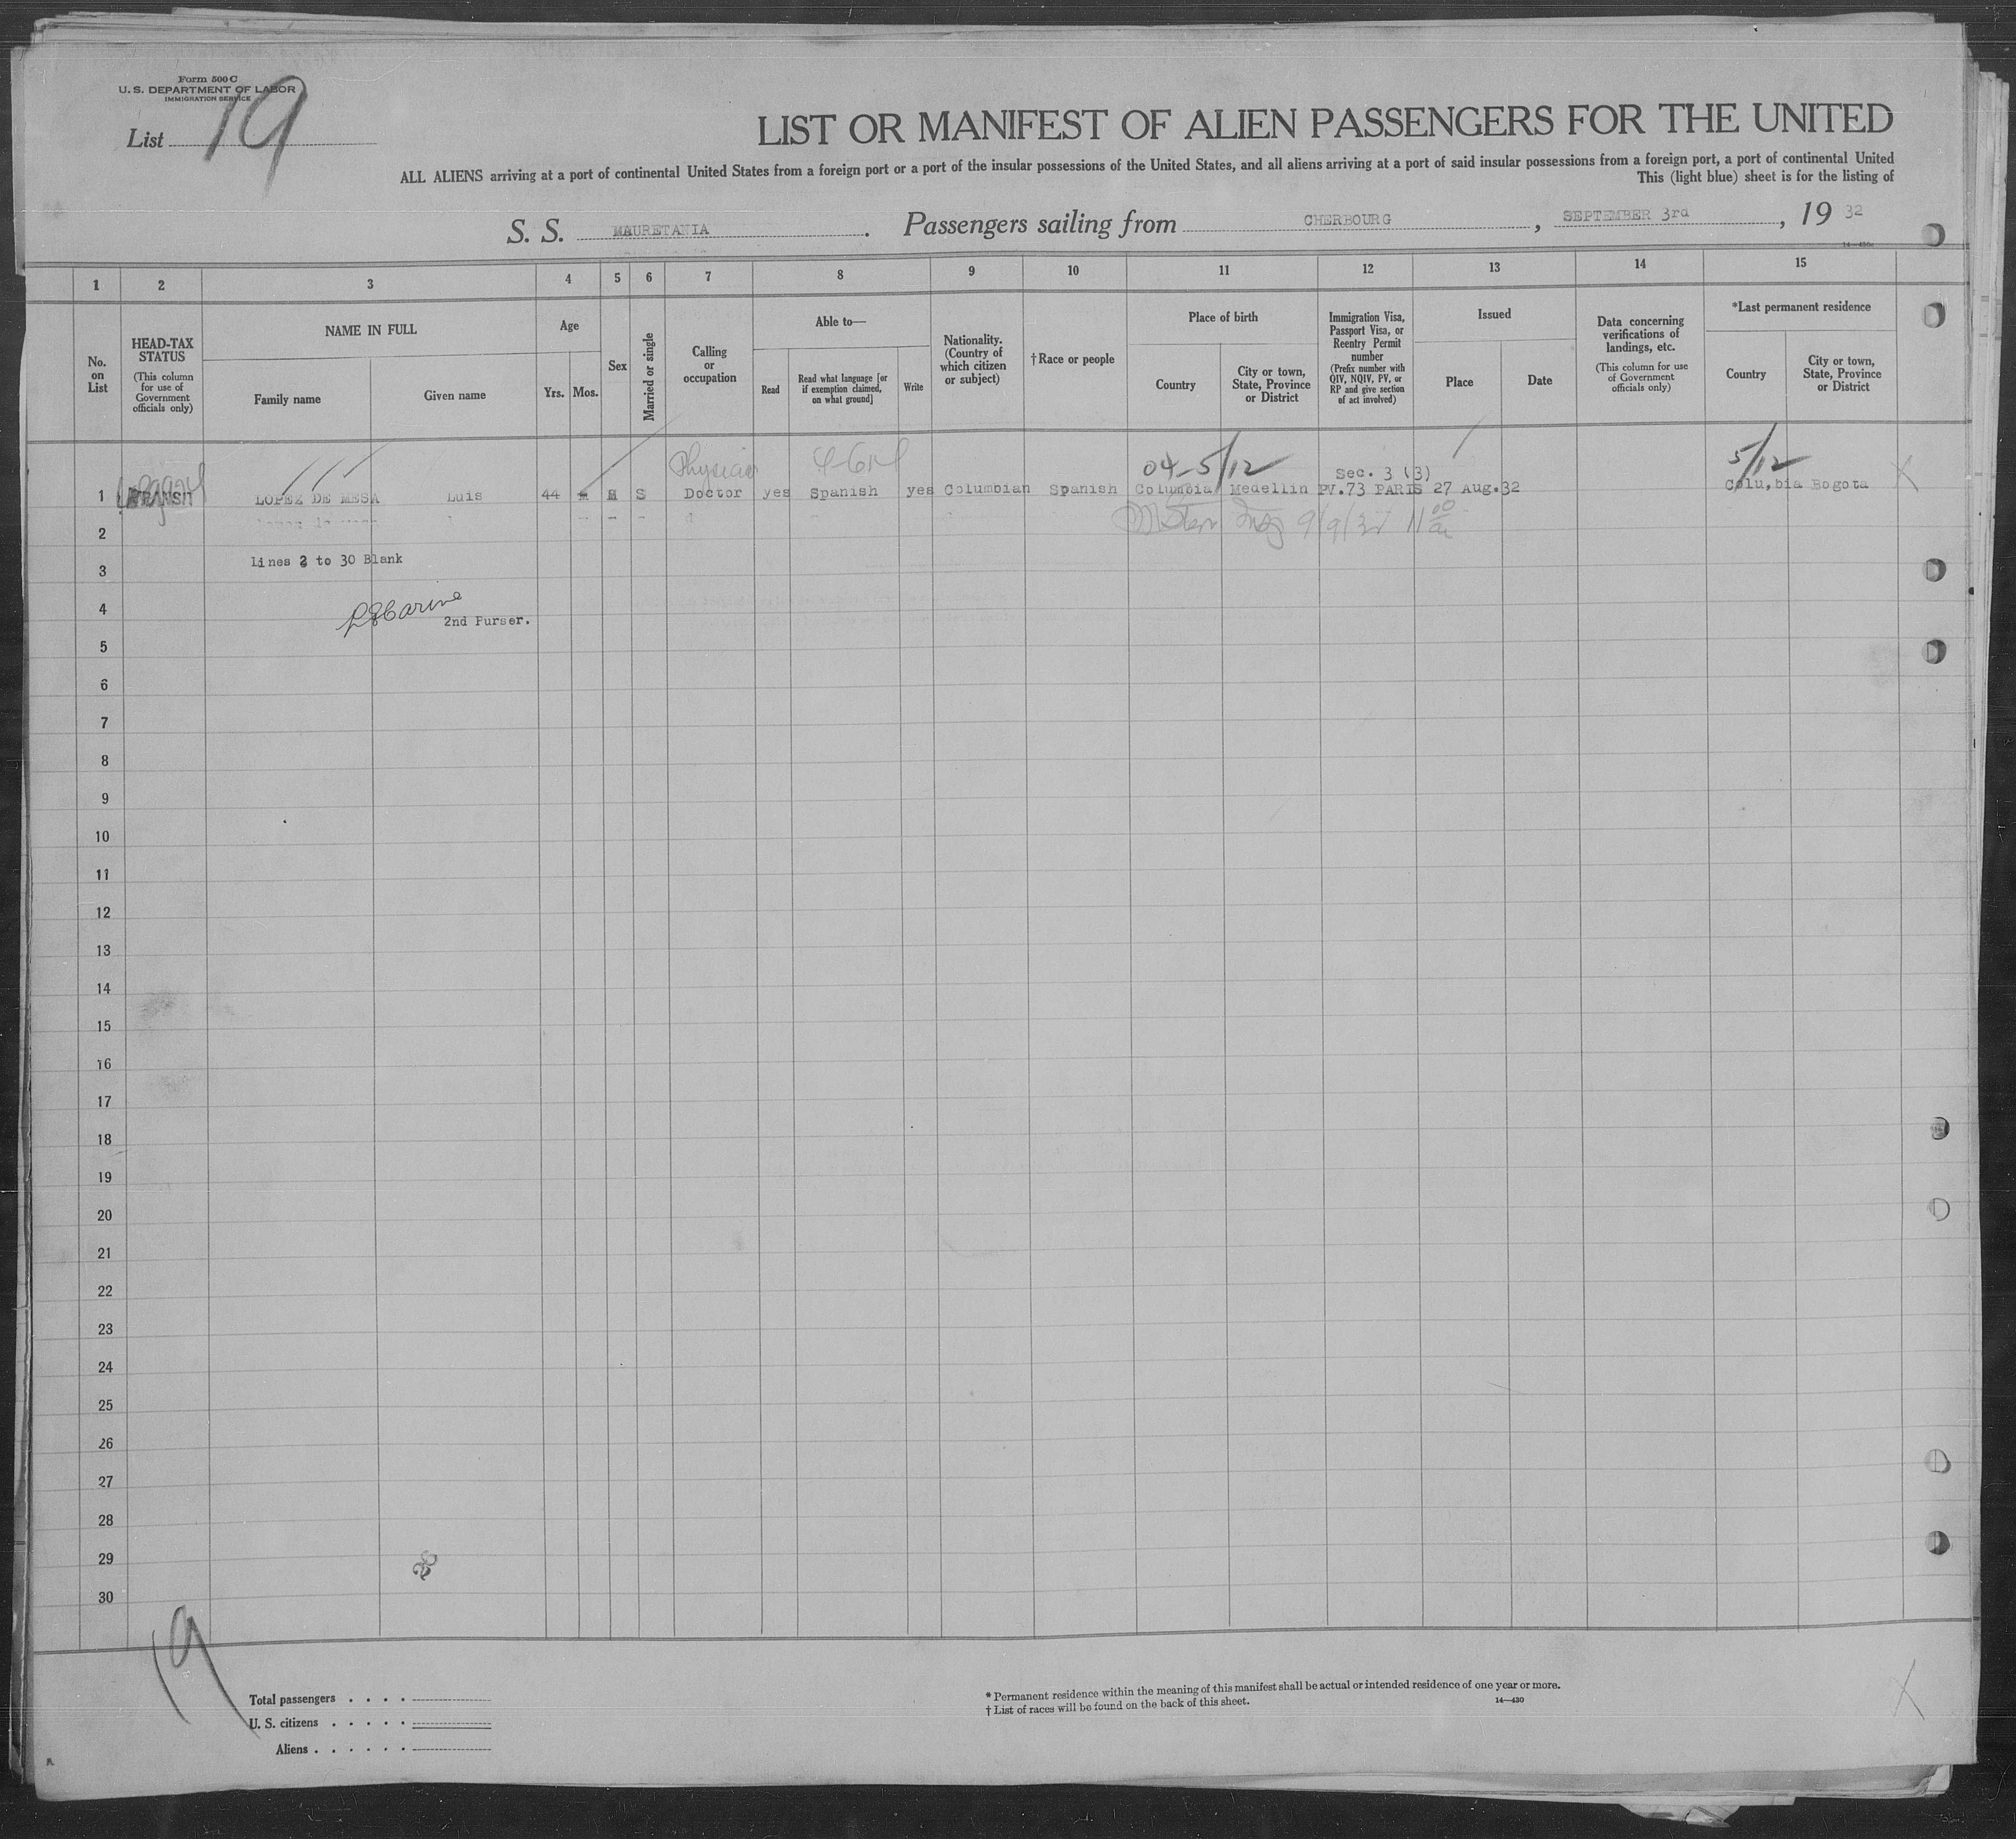 Form 500 C
U. S. DEPARTMENT OF LABOR
IMMIGRATION SERVICE
List 19
LIST OR MANIFEST OF ALIEN PASSENGERS FOR THE UNITED
ALL ALIENS arriving at a port of continental United States from a foreign port or a port of the insular possessions of the United States, and all aliens arriving at a port of said insular possessions from a foreign port, a port of continental United
This (light blue) sheet is for the listing of
S. S. MAURETANIA. Passengers sailing from CHERBOURG, SEPTEMBER 3rd, 19 32
1 2 3 4 5 6 7 8 9 10 11 12 13 14 15
No. on List
HEAD-TAX STATUS
(This column for use of Government officials only)
NAME IN FULL
Family name
Given name
Age
Yrs. Mos.
Sex
Married or single
Calling or occupation
Able to—
Read
Read what language [or if exemption claimed, on what ground]
Write
Nationality. (Country of which citizen or subject)
†Race or people
Place of birth
Country
City or town, State, Province or District
Immigration Visa, Passport Visa, or Reentry Permit number
(Prefix number with QIV, NQIV, PV, or RP and give section of act involved)
Issued
Place
Date
Data concerning verifications of landings, etc.
(This column for use of Government officials only)
*Last permanent residence
Country
City or town, State, Province or District
Physician 04-5/12 Sec. 3 (3) 5/12
1 TRANSIT LOPEZ DE MESA Luis 44 M S Doctor yes Spanish yes Columbian Spanish Columbia Medellin PV.73 PARIS 27 Aug.32 Colu,bia Bogota X
2 9/9/32 11 00
Lines 2 to 30 Blank
3
4
2nd Purser.
5
6
7
8
9
10
11
12
13
14
15
16
17
18
19
20
21
22
23
24
25
26
27
28
29
30
19
Total passengers . . . .
U. S. citizens . . . . .
Aliens . . . . . .
* Permanent residence within the meaning of this manifest shall be actual or intended residence of one year or more.
† List of races will be found on the back of this sheet.
14—430
X